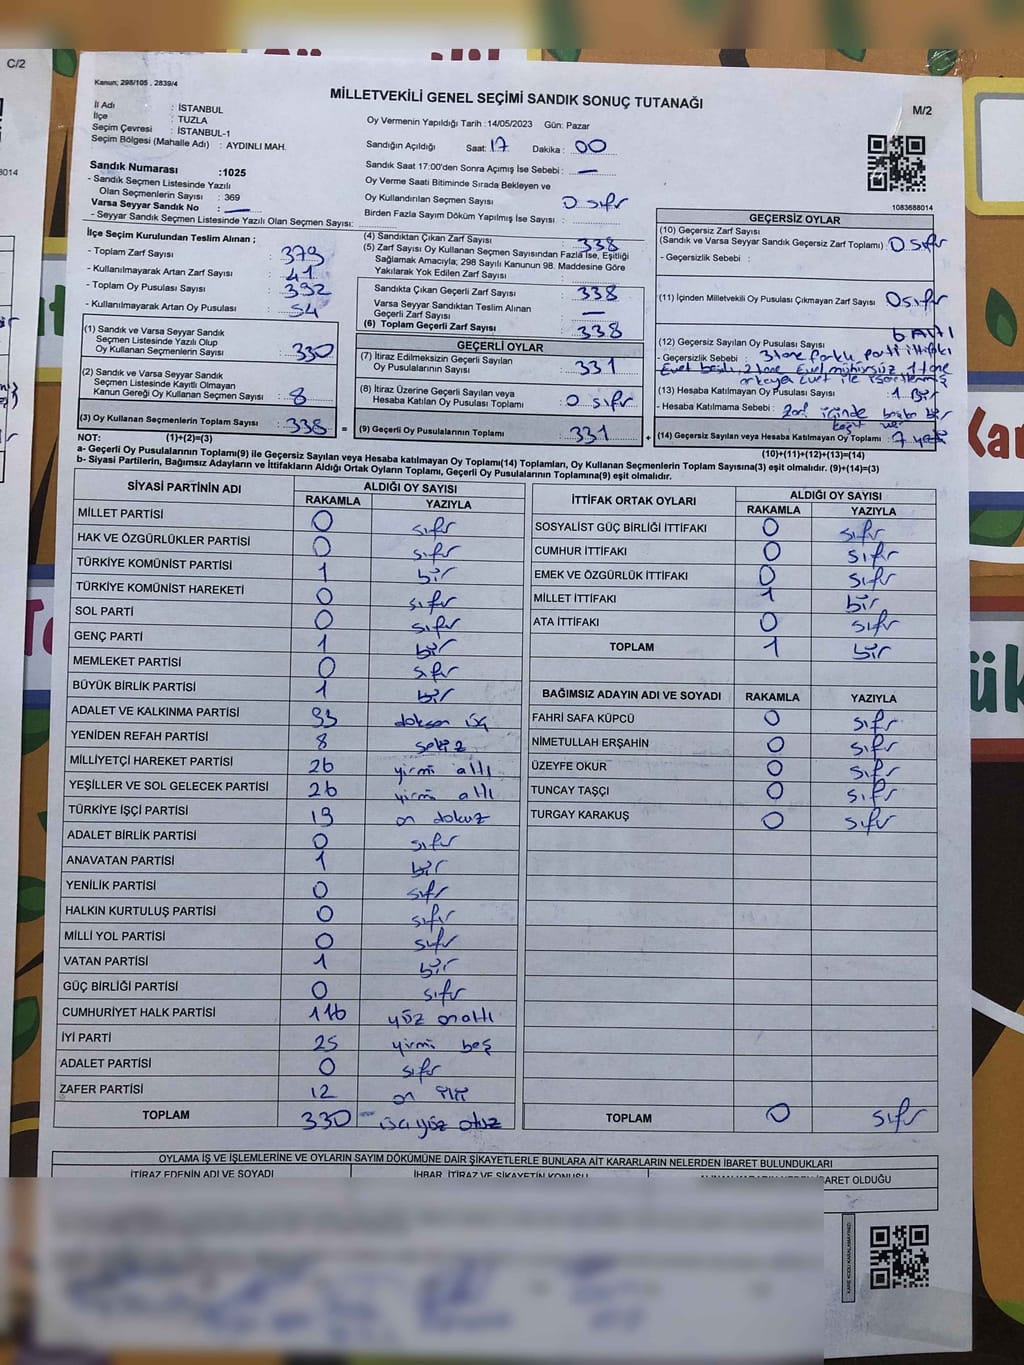 C/2
Kanun; 298/105 , 2839/4
MİLLETVEKİLİ GENEL SEÇİMİ SANDIK SONUÇ TUTANAĞI
M/2
İl Adı : İSTANBUL
İlçe : TUZLA
Seçim Çevresi : İSTANBUL-1
Seçim Bölgesi (Mahalle Adı) : AYDINLI MAH.
Oy Vermenin Yapıldığı Tarih :14/05/2023 Gün: Pazar
Sandığın Açıldığı Saat: 17 Dakika : 00
Sandık Saat 17:00'den Sonra Açımış İse Sebebi : —
Oy Verme Saati Bitiminde Sırada Bekleyen ve
Oy Kullandırılan Seçmen Sayısı : 0 sıfır
Birden Fazla Sayım Döküm Yapılmış İse Sayısı :
1083688014
Sandık Numarası :1025
- Sandık Seçmen Listesinde Yazılı
Olan Seçmenlerin Sayısı : 369
Varsa Seyyar Sandık No : —
- Seyyar Sandık Seçmen Listesinde Yazılı Olan Seçmen Sayısı:
İlçe Seçim Kurulundan Teslim Alınan ;
- Toplam Zarf Sayısı : 379
- Kullanılmayarak Artan Zarf Sayısı : 41
- Toplam Oy Pusulası Sayısı : 392
- Kullanılmayarak Artan Oy Pusulası : 54
(1) Sandık ve Varsa Seyyar Sandık
Seçmen Listesinde Yazılı Olup
Oy Kullanan Seçmenlerin Sayısı : 330
(2) Sandık ve Varsa Seyyar Sandık
Seçmen Listesinde Kayıtlı Olmayan
Kanun Gereği Oy Kullanan Seçmen Sayısı : 8
(3) Oy Kullanan Seçmenlerin Toplam Sayısı : 338 =
(1)+(2)=(3)
(4) Sandıktan Çıkan Zarf Sayısı : 338
(5) Zarf Sayısı Oy Kullanan Seçmen Sayısından Fazla İse, Eşitliği
Sağlamak Amacıyla; 298 Sayılı Kanunun 98. Maddesine Göre
Yakılarak Yok Edilen Zarf Sayısı :
Sandıkta Çıkan Geçerli Zarf Sayısı : 338
Varsa Seyyar Sandıktan Teslim Alınan
Geçerli Zarf Sayısı : —
(6) Toplam Geçerli Zarf Sayısı : 338
GEÇERLİ OYLAR
(7) İtiraz Edilmeksizin Geçerli Sayılan
Oy Pusulalarının Sayısı : 331
(8) İtiraz Üzerine Geçerli Sayılan veya
Hesaba Katılan Oy Pusulası Toplamı : 0 sıfır
(9) Geçerli Oy Pusulalarının Toplamı : 331 +
GEÇERSİZ OYLAR
(10) Geçersiz Zarf Sayısı
(Sandık ve Varsa Seyyar Sandık Geçersiz Zarf Toplamı) : 0 sıfır
- Geçersizlik Sebebi :
(11) İçinden Milletvekili Oy Pusulası Çıkmayan Zarf Sayısı 0 sıfır
(12) Geçersiz Sayılan Oy Pusulası Sayısı : 6 Altı
- Geçersizlik Sebebi : 3 tane farklı parti ittifakı
Evet basılı, 2 tane Evet mühürsüz, 1 tane
ortaya Evet ile işaretlenmiş
(13) Hesaba Katılmayan Oy Pusulası Sayısı : 1 Bir
- Hesaba Katılmama Sebebi : zarf içinde başka bir
(14) Geçersiz Sayılan veya Hesaba Katılmayan Oy Toplamı : 7 yedi
(10)+(11)+(12)+(13)=(14)
NOT:
a- Geçerli Oy Pusulalarının Toplamı(9) ile Geçersiz Sayılan veya Hesaba katılmayan Oy Toplamı(14) Toplamları, Oy Kullanan Seçmenlerin Toplam Sayısına(3) eşit olmalıdır. (9)+(14)=(3)
b- Siyasi Partilerin, Bağımsız Adayların ve İttifakların Aldığı Ortak Oyların Toplamı, Geçerli Oy Pusulalarının Toplamına(9) eşit olmalıdır.
SİYASİ PARTİNİN ADI ALDIĞI OY SAYISI
RAKAMLA YAZIYLA
MİLLET PARTİSİ 0 sıfır
HAK VE ÖZGÜRLÜKLER PARTİSİ 0 sıfır
TÜRKİYE KOMÜNİST PARTİSİ 1 bir
TÜRKİYE KOMÜNİST HAREKETİ 0 sıfır
SOL PARTİ 0 sıfır
GENÇ PARTİ 1 bir
MEMLEKET PARTİSİ 0 sıfır
BÜYÜK BİRLİK PARTİSİ 1 bir
ADALET VE KALKINMA PARTİSİ 93 doksan üç
YENİDEN REFAH PARTİSİ 8 sekiz
MİLLİYETÇİ HAREKET PARTİSİ 26 yirmi altı
YEŞİLLER VE SOL GELECEK PARTİSİ 26 yirmi altı
TÜRKİYE İŞÇİ PARTİSİ 19 on dokuz
ADALET BİRLİK PARTİSİ 0 sıfır
ANAVATAN PARTİSİ 1 bir
YENİLİK PARTİSİ 0 sıfır
HALKIN KURTULUŞ PARTİSİ 0 sıfır
MİLLİ YOL PARTİSİ 0 sıfır
VATAN PARTİSİ 1 bir
GÜÇ BİRLİĞİ PARTİSİ 0 sıfır
CUMHURİYET HALK PARTİSİ 116 yüz onaltı
İYİ PARTİ 25 yirmi beş
ADALET PARTİSİ 0 sıfır
ZAFER PARTİSİ 12 on iki
TOPLAM 330 üçyüz otuz
İTTİFAK ORTAK OYLARI ALDIĞI OY SAYISI
RAKAMLA YAZIYLA
SOSYALİST GÜÇ BİRLİĞİ İTTİFAKI 0 sıfır
CUMHUR İTTİFAKI 0 sıfır
EMEK VE ÖZGÜRLÜK İTTİFAKI 0 sıfır
MİLLET İTTİFAKI 1 bir
ATA İTTİFAKI 0 sıfır
TOPLAM 1 bir
BAĞIMSIZ ADAYIN ADI VE SOYADI RAKAMLA YAZIYLA
FAHRİ SAFA KÜPCÜ 0 sıfır
NİMETULLAH ERŞAHİN 0 sıfır
ÜZEYFE OKUR 0 sıfır
TUNCAY TAŞÇI 0 sıfır
TURGAY KARAKUŞ 0 sıfır
TOPLAM 0 sıfır
OYLAMA İŞ VE İŞLEMLERİNE VE OYLARIN SAYIM DÖKÜMÜNE DAİR ŞİKAYETLERLE BUNLARA AİT KARARLARIN NELERDEN İBARET BULUNDUKLARI
İTİRAZ EDENİN ADI VE SOYADI İHBAR, İTİRAZ VE ŞİKAYETİN KONUSU İBARET OLDUĞU